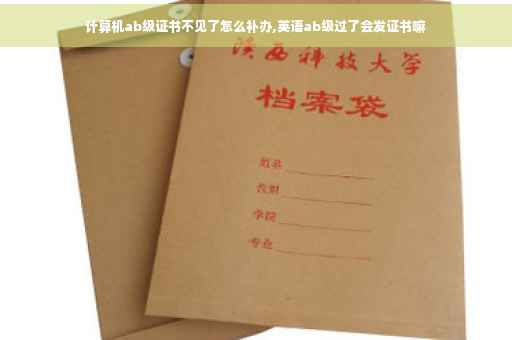 计算机ab级证书不见了怎么补办,英语ab级过了会发证书嘛
陕西科技大学
档案袋
姓名
学院
专业